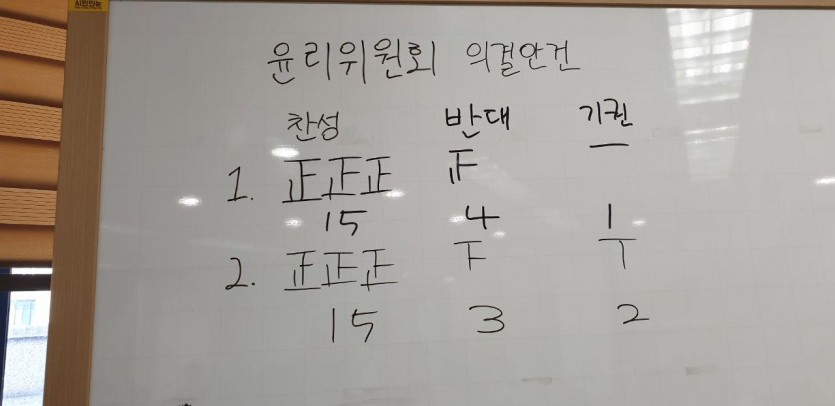 윤리위원회 의결안건
찬성 반대 기권
1. 正正正 𝍵 一
15 4 1
2. 正正正 下 丅
15 3 2